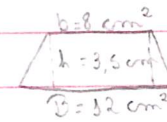 b=8 cm²
h=3,5 cm
B=12 cm²